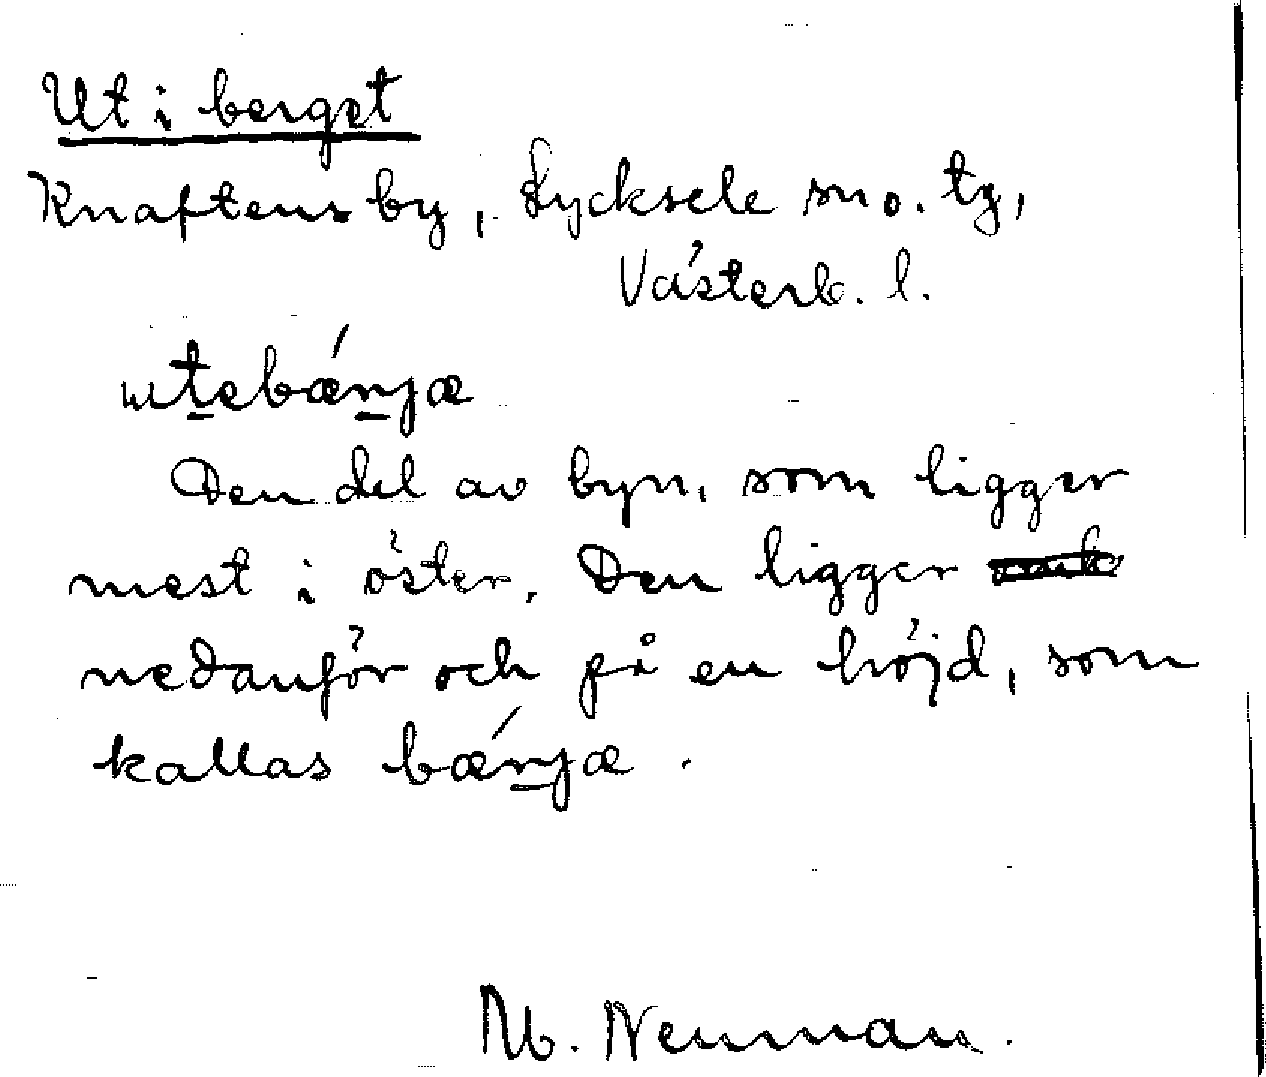 Ut i berget
Knaftens by, Lycksele sn o. tg,
Västerb. l.
utebǽnjæ
Den del av byn, som ligger
mest i öster. Den ligger
nedanför och på en höjd, som
kallas bǽnjæ.
M. Neuman.